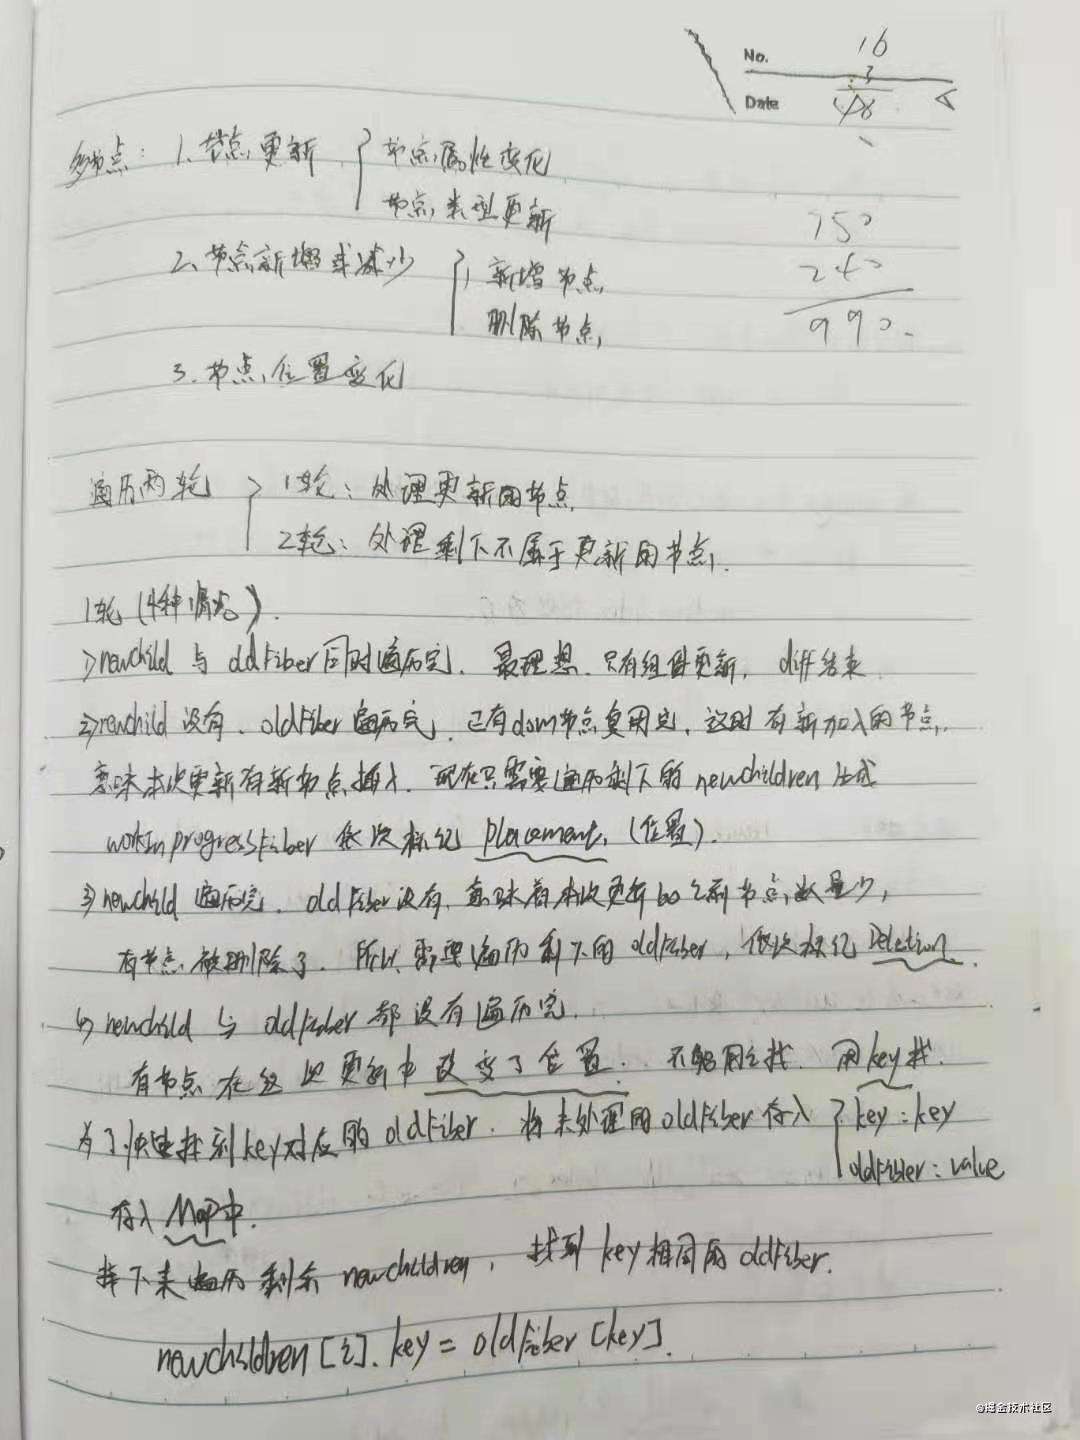 No. 16
3
Date 48
多节点: 1. 节点更新 { 节点属性变化
节点类型更新
750
2. 节点新增或减少 { 新增节点
240
删除节点
990
3. 节点位置变化
遍历两轮 { 1轮: 处理更新的节点
2轮: 处理剩下不属于更新的节点.
1轮 (4种情况).
1) newchild 与 oldFiber 同时遍历完. 最理想. 只有组件更新, diff结束
2) newchild 没有. oldFiber 遍历完. 已有dom节点复用完, 这时有新加入的节点.
意味本次更新有新节点插入. 现在只需要遍历剩下的 newchildren 生成
workInprogressFiber 依次标记 placement. (位置).
3) newchild 遍历完. oldFiber没有. 意味着本次更新 节点数量少,
有节点被删除了. 所以, 需要遍历剩下的 oldFiber, 依次标记 Deletion.
4) newchild 与 oldFiber 都没有遍历完.
有节点在这次更新中改变了位置. 不能用i找. 用key找.
为了快速找到key对应的 oldFiber. 将未处理的 oldFiber 存入 { key: key
oldFiber: value
存入 Map中.
接下来遍历剩余 newchildren, 找到 key相同的 oldFiber.
newchildren [i]. key = oldFiber [key].
@掘金技术社区